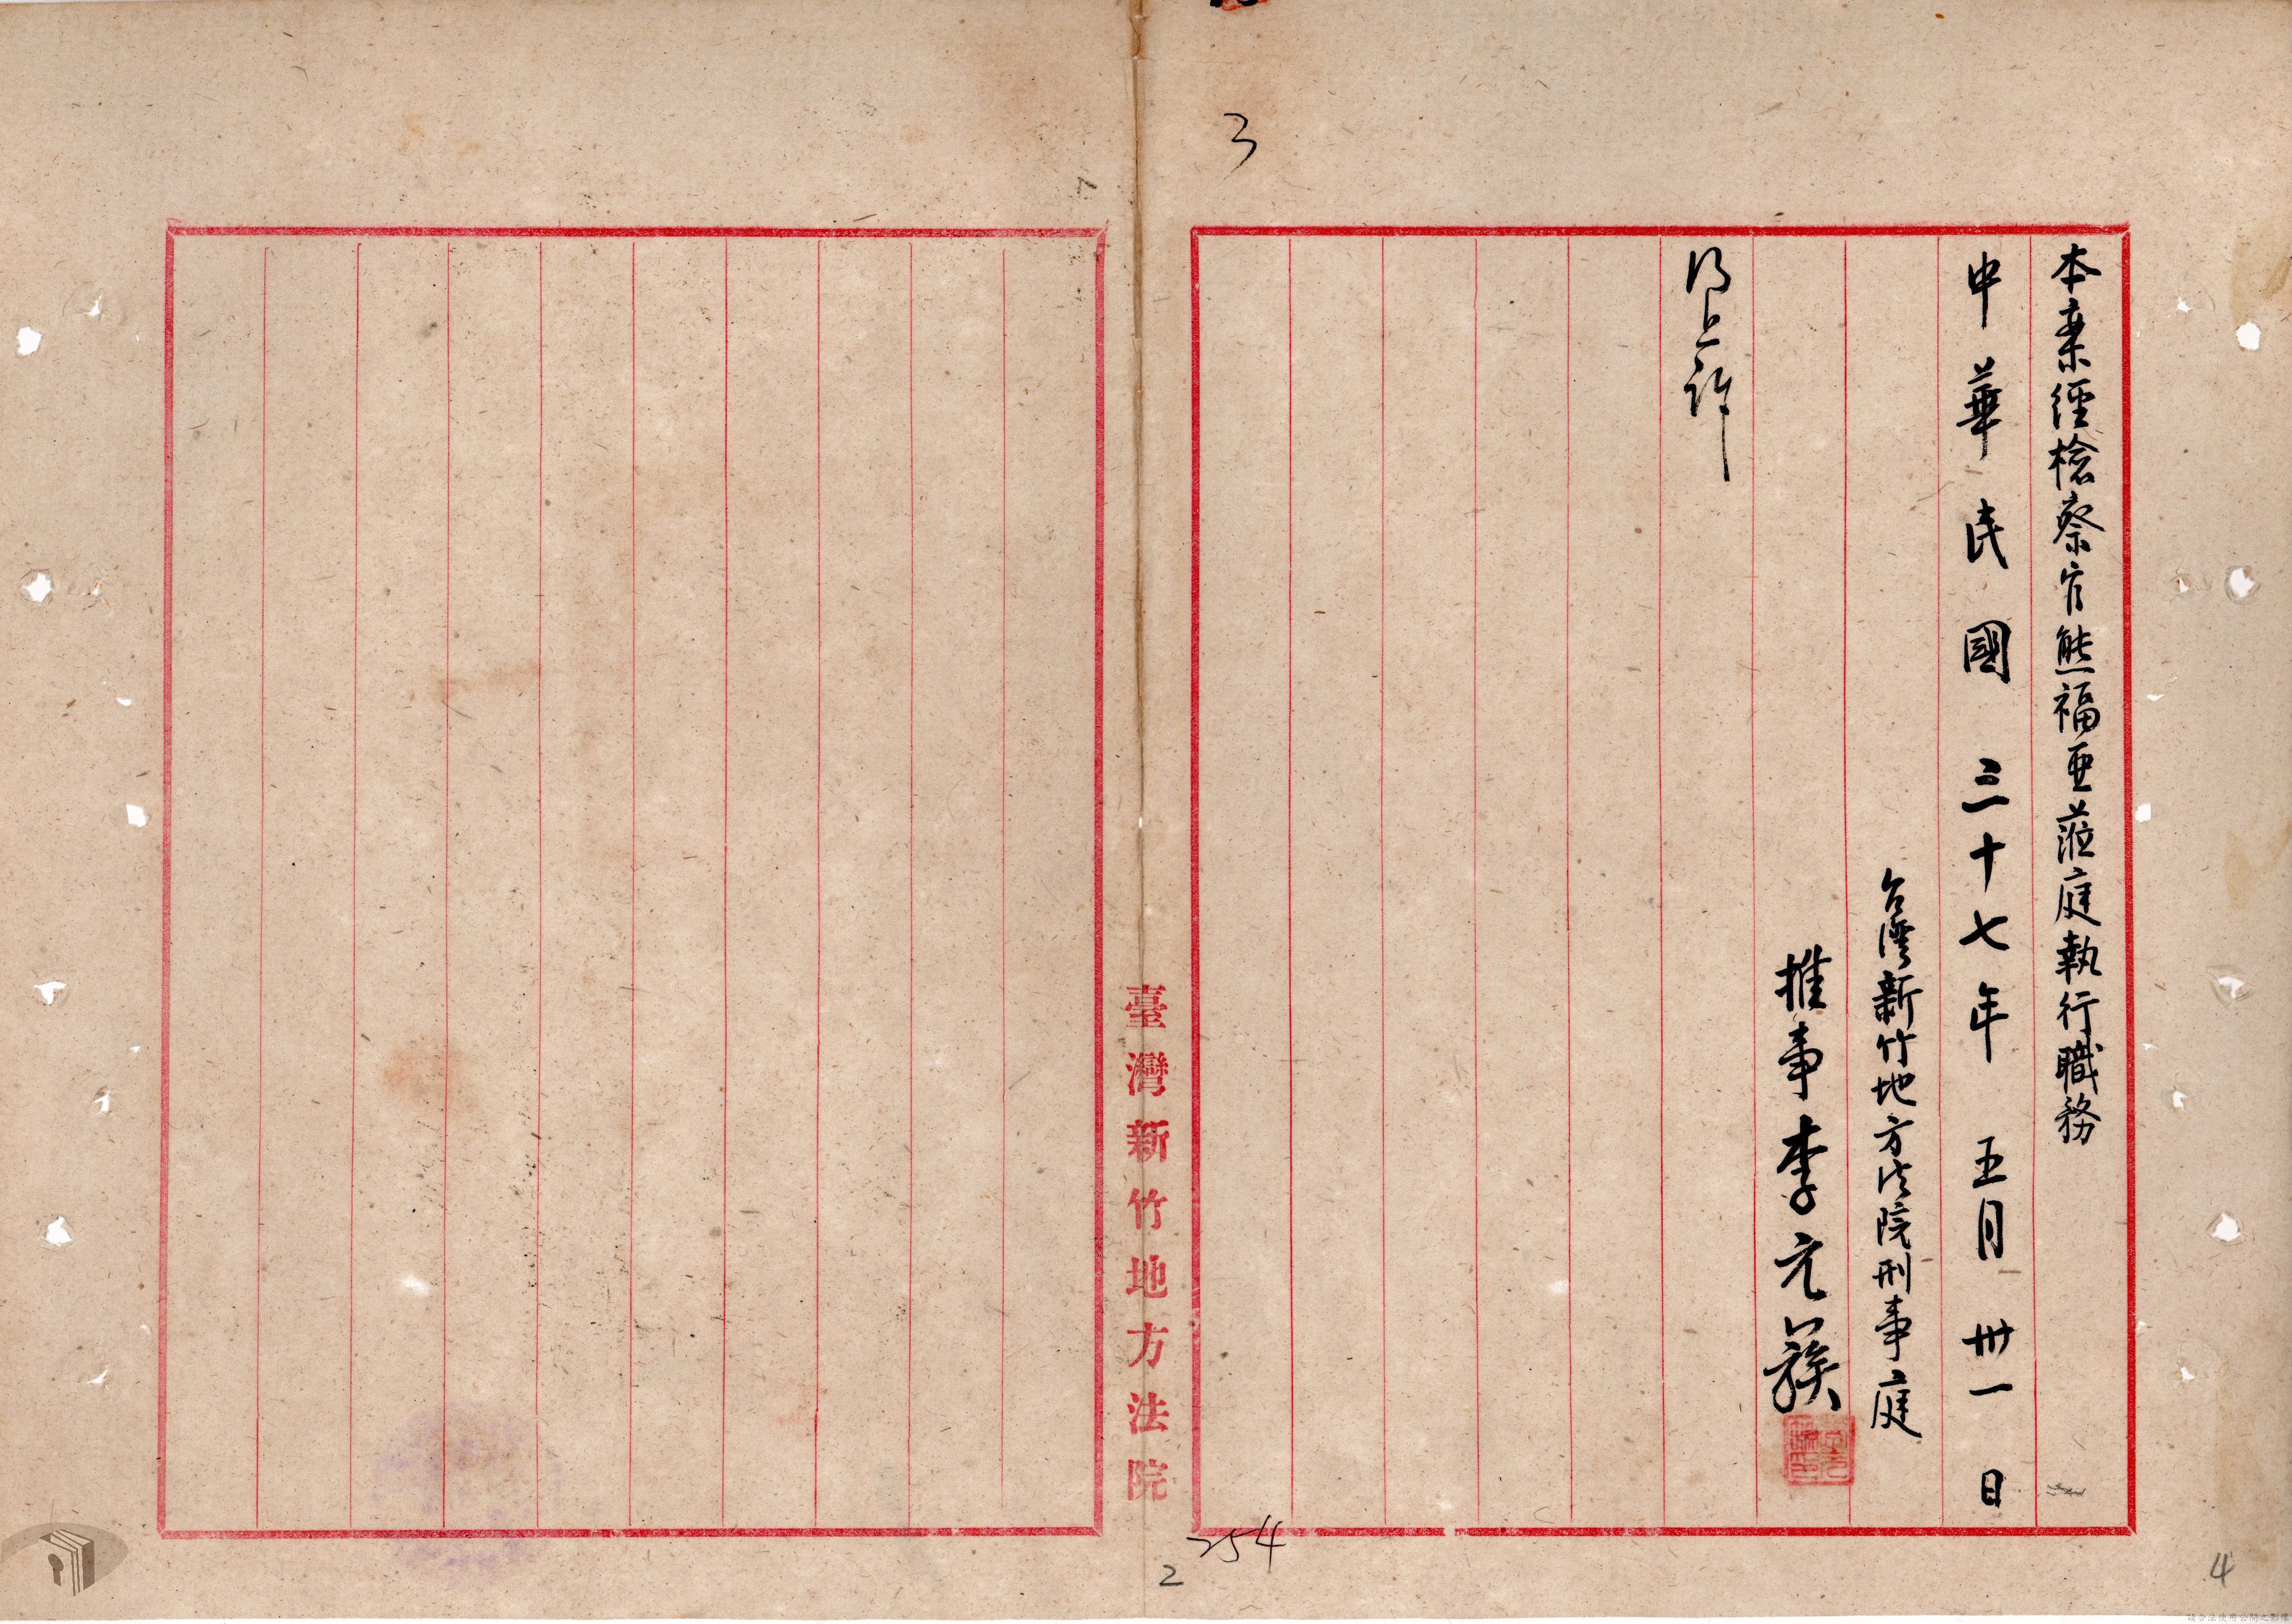 3
本案經檢察官熊福亜蒞庭執行職務
中華民國三十七年五月卅一日
台灣新竹地方法院刑事庭
推事李元簇
得上訴
臺灣新竹地方法院
254
2
4